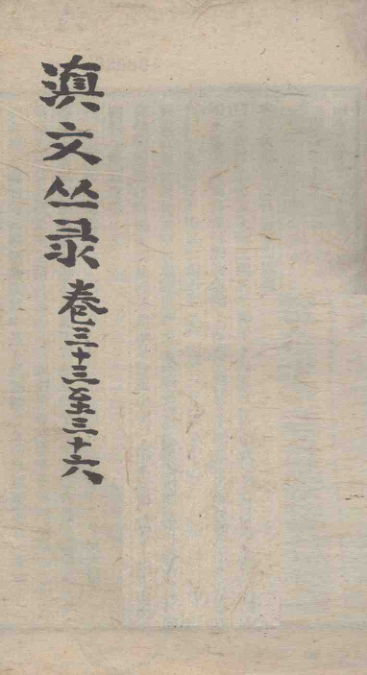 滇文丛录卷三十三至三十六